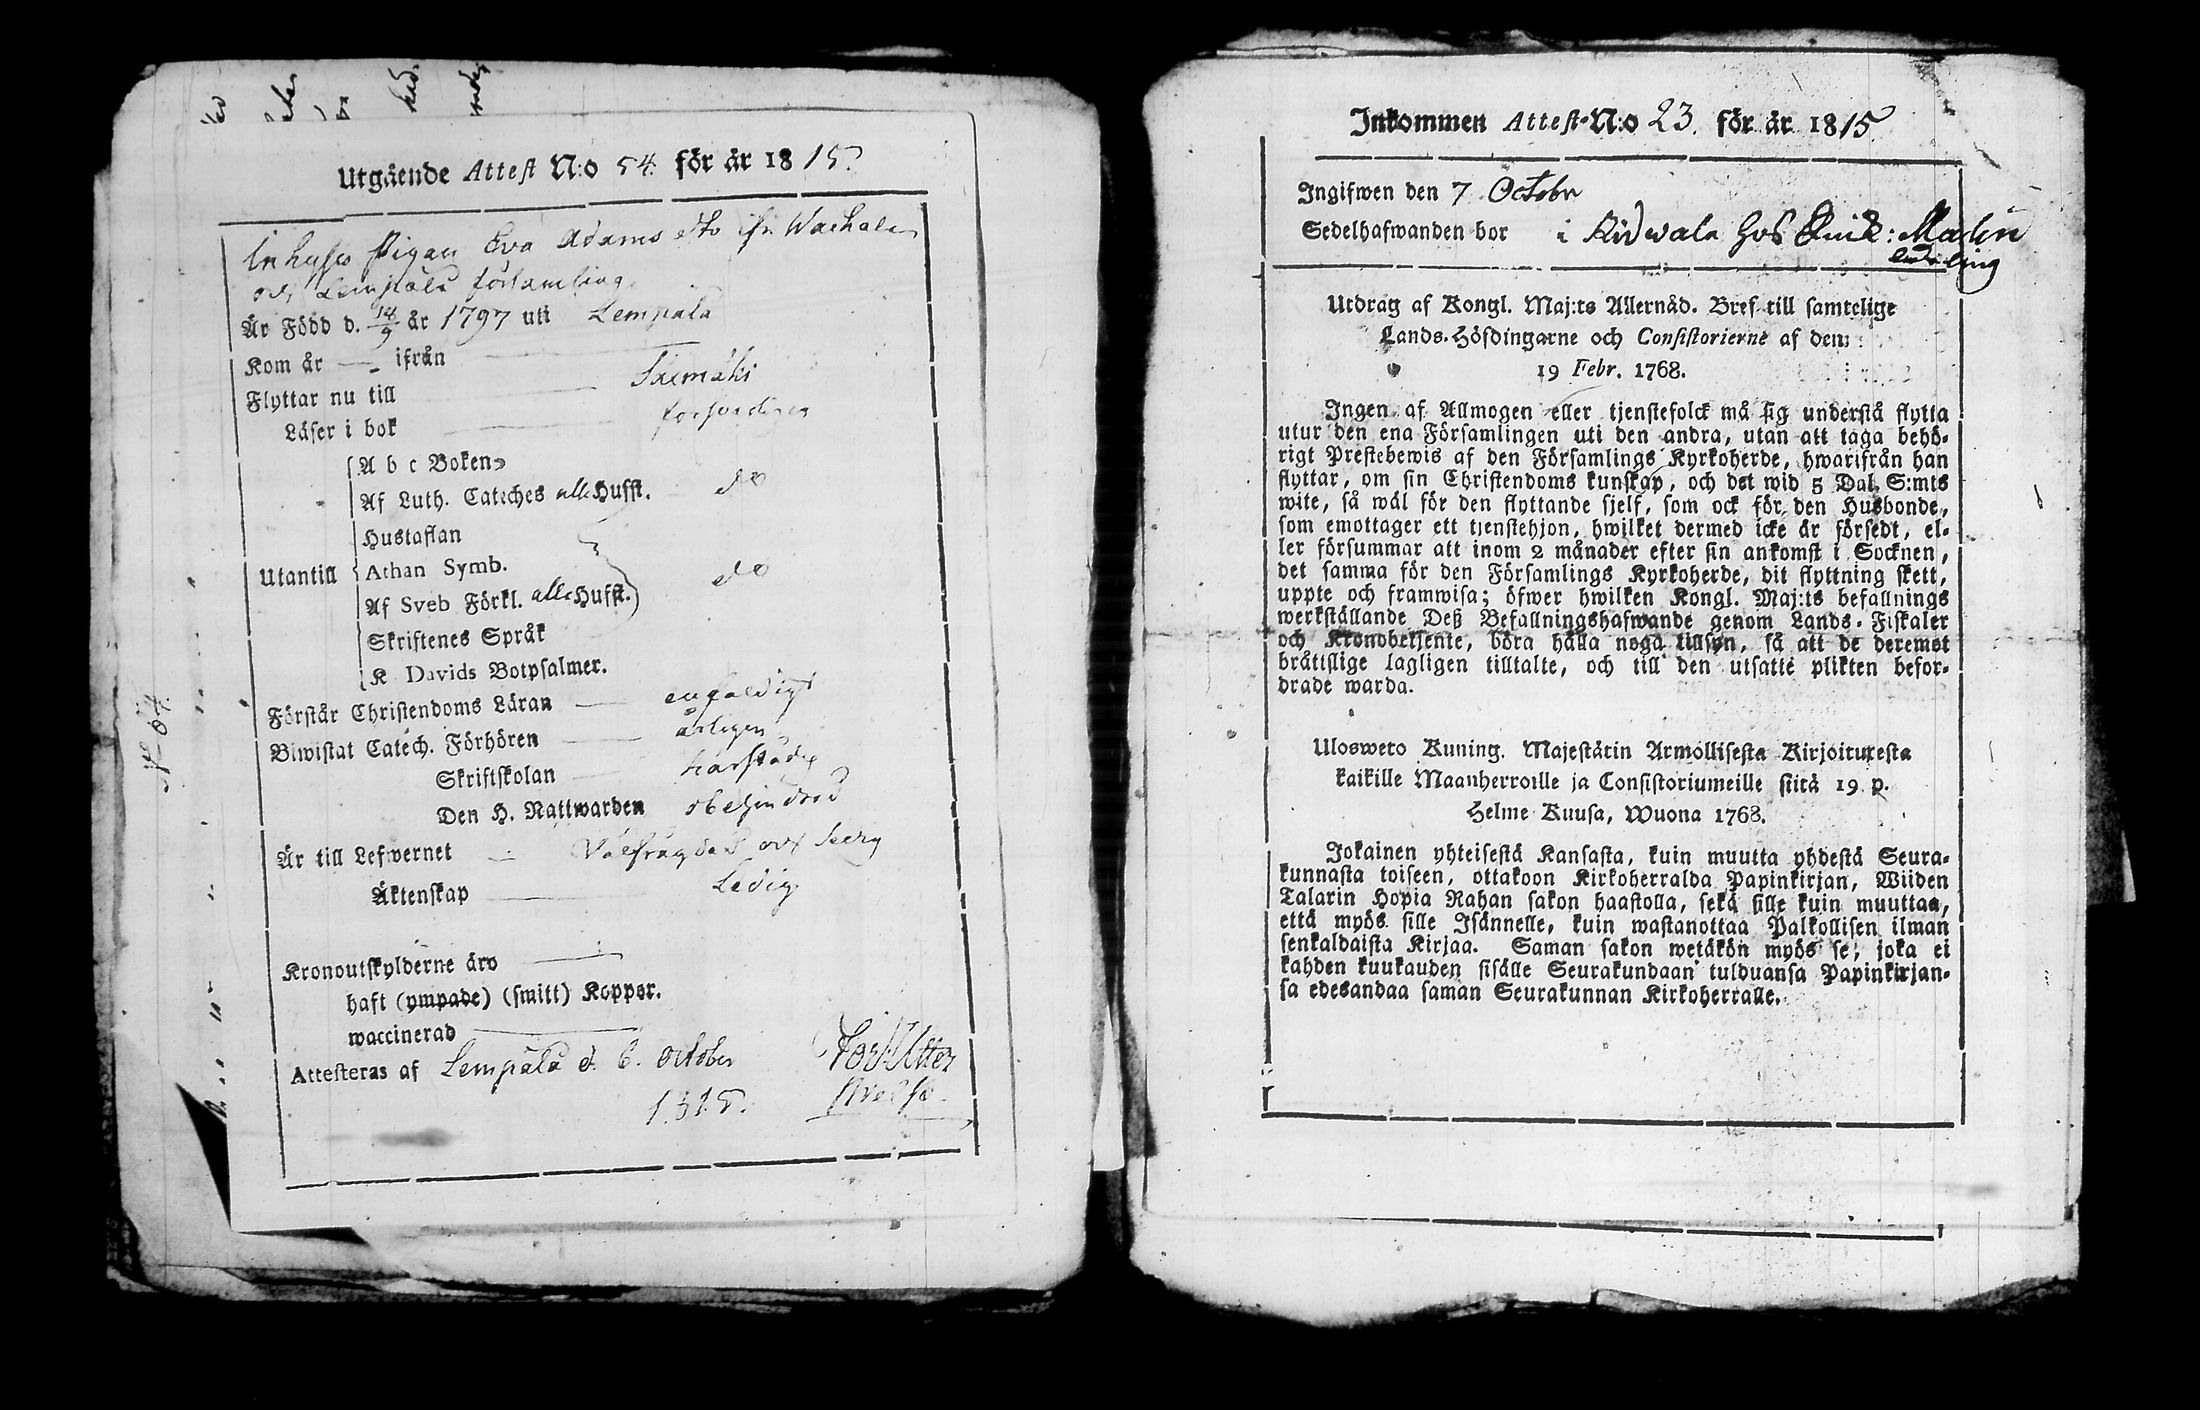 Utgående Attest N:o 54. för år 1815.
Inhyses Pigan Eva Adams dtr ifr. Wachala
och Lempälä församling
Är Född d. 18/9 år 1797 uti Lempälä
Kom år — ifrån
Flyttar nu till Säxmäki
Läser i bok försvarligen
A b c Boken
Af Luth. Cateches alla Hufst. do
Hustaflan
Utantill Athan Symb.
Af Sveb Förkl. alla Hufst. do
Skriftenes Språk
K Davids Botpsalmer.
Förstår Christendoms Läran enfaldigt
Biwistat Catech. Förhören årligen
Skriftskolan härstädes
Den H. Nattwarden obehindrad
Är till Lefwernet Välfrägdad och
Äktenskap Ledig
Kronoutskylderne äro
haft (ympade) (smitt) Koppor.
waccinerad
Attesteras af Lempälä d. 6. October
1815.
N 54.
Inkommen Attest N:o 23. för år 1815
Ingifwen den 7 Octobr
Sedelhafwanden bor i Ridvala hos Malin
Utdrag af Kongl. Maj:ts Allernåd. Bref till samtelige
Lands-Höfdingarne och Consistorierne af den
19 Febr. 1768.
Ingen af Allmogen eller tjenstefolck må sig understå flytta
utur den ena Församlingen uti den andra, utan att taga behö-
rigt Prestebewis af den Församlings Kyrkoherde, hwarifrån han
flyttar, om sin Christendoms kunskap, och det wid 5 Dal. S:mts
wite, så wäl för den flyttande sjelf, som ock för den Husbonde,
som emottager ett tjenstehjon, hwilket dermed icke är försedt, el-
ler försummar att inom 2 månader efter sin ankomst i Socknen,
det samma för den Församlings Kyrkoherde, dit flyttning skett,
uppte och framwisa; öfwer hwilken Kongl. Maj:ts befallnings
werkställande Deß Befallningshafwande genom Lands-Fiskaler
och Kronobetjente, böra hålla noga tillsyn, så att de deremot
bråttslige lagligen tilltalte, och till den utsatte plikten befor-
drade warda.
Ulosweto Kuning. Majestätin Armollisesta Kirjoituxesta
kaikille Maanherroille ja Consistoriumeille siitä 19 p.
Helme Kuusa, Wuona 1768.
Jokainen yhteisestä Kansasta, kuin muutta yhdestä Seura-
kunnasta toiseen, ottakoon Kirkoherralda Papinkirjan, Wiiden
Talarin Hopia Rahan sakon haastolla, sekä sille kuin muuttaa,
että myös sille Isännelle, kuin wastanottaa Palkollisen ilman
senkaldaista Kirjaa. Saman sakon wetäkön myös se, joka ei
kahden kuukauden sisälle Seurakundaan tulduansa Papinkirjan-
sa edesandaa saman Seurakunnan Kirkoherralle.